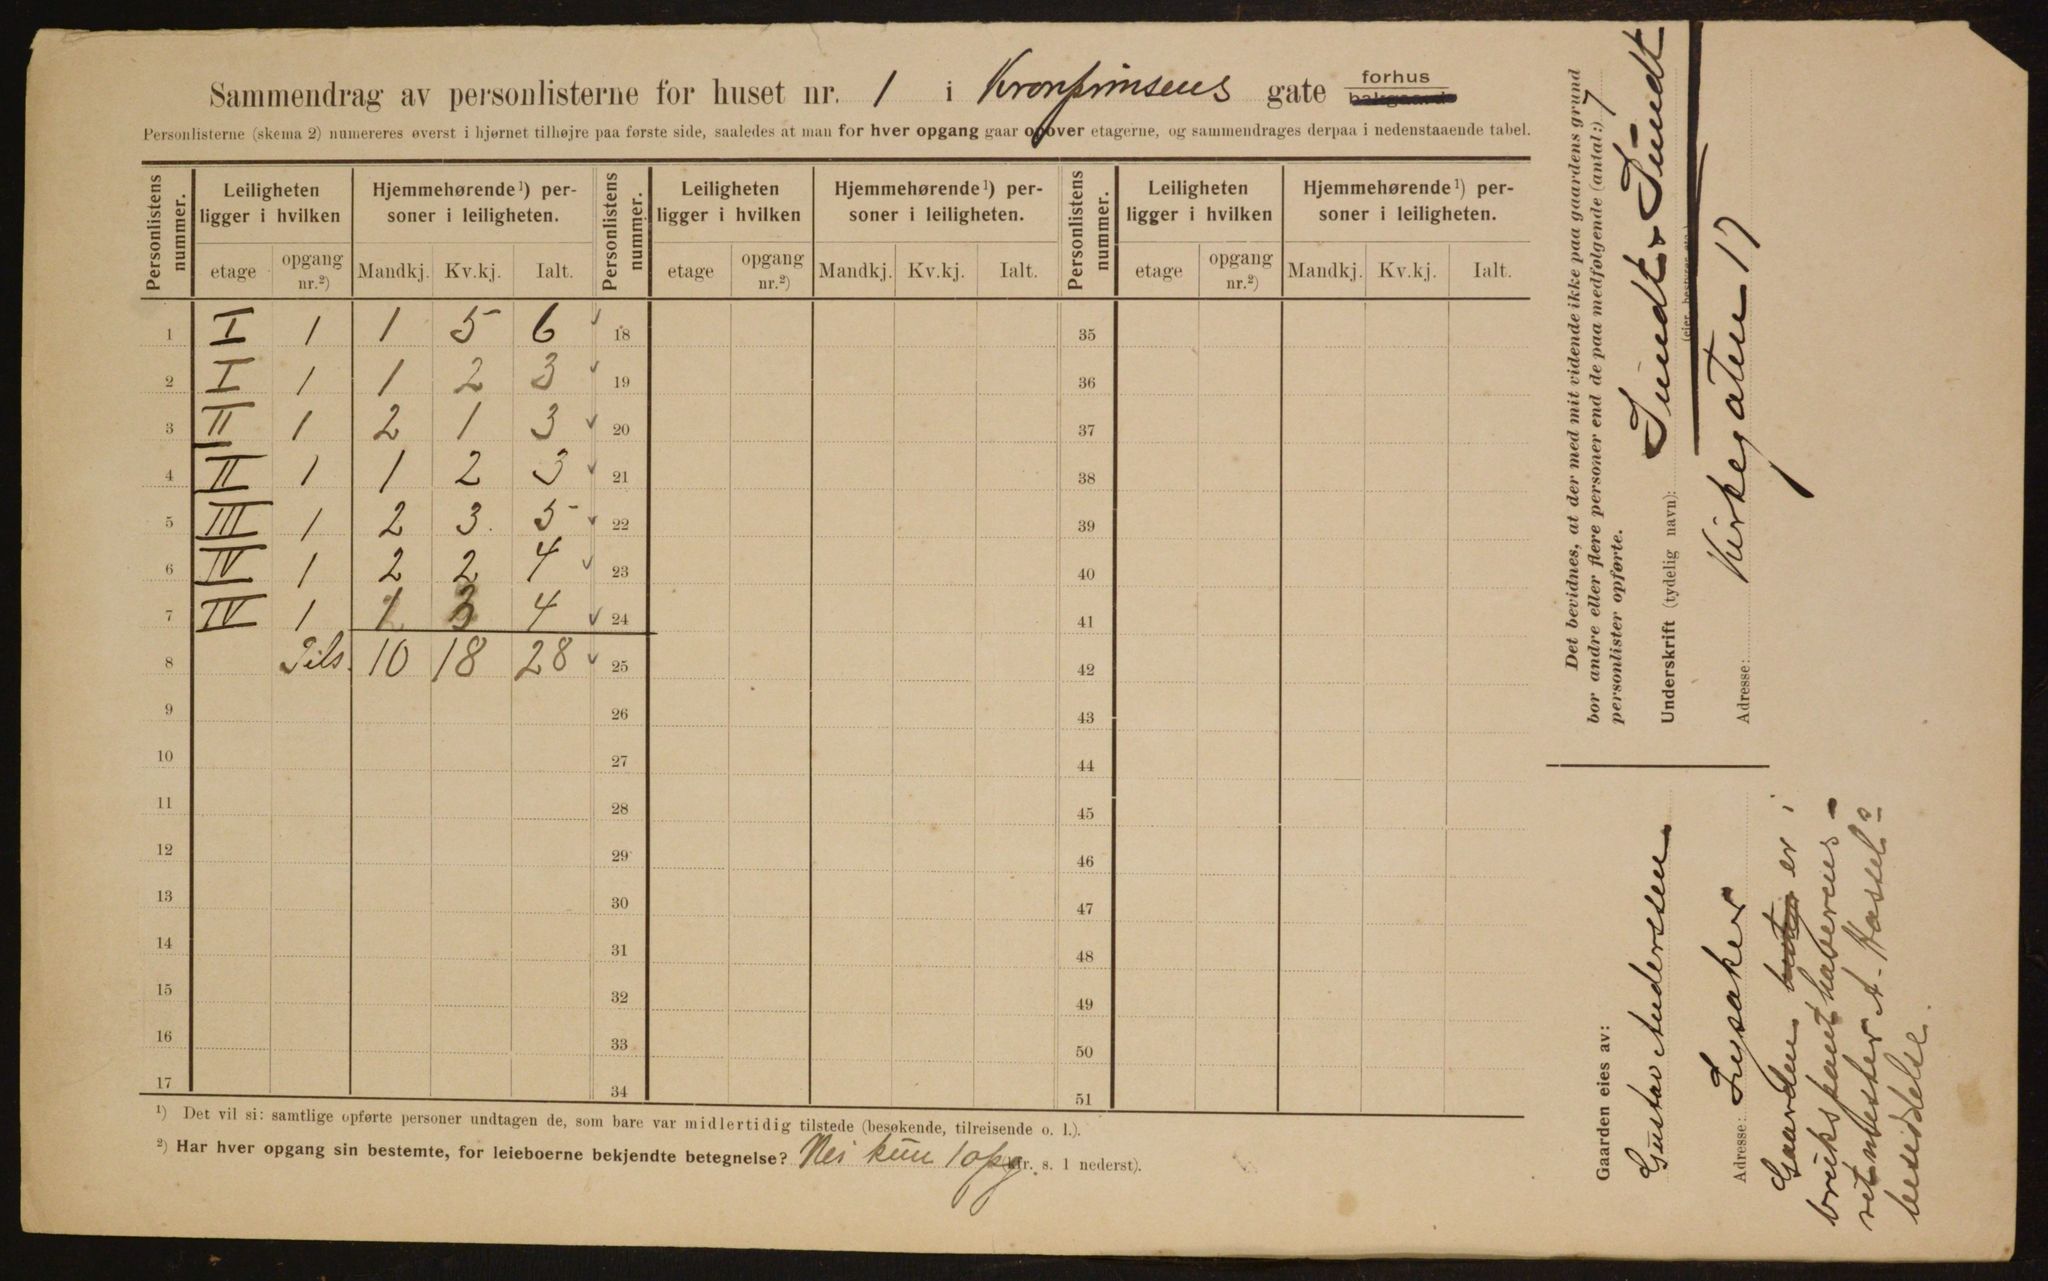 Sammendrag av personlisterne for huset nr. 1 i Kronprinsens gate forhus bakgaard
Personlisterne (skema 2) numereres øverst i hjørnet tilhøjre paa første side, saaledes at man for hver opgang gaar opover etagerne, og sammendrages derpaa i nedenstaaende tabel.
Personlistens nummer. Leiligheten ligger i hvilken Hjemmehørende¹) personer i leiligheten. Personlistens nummer. Leiligheten ligger i hvilken Hjemmehørende¹) personer i leiligheten. Personlistens nummer. Leiligheten ligger i hvilken Hjemmehørende¹) personer i leiligheten.
etage opgang nr.²) Mandkj. Kv.kj. Ialt. etage opgang nr.²) Mandkj. Kv.kj. Ialt. etage opgang nr.²) Mandkj. Kv.kj. Ialt.
1 I 1 1 5 6 18 35
2 I 1 1 2 3 19 36
3 II 1 2 1 3 20 37
4 II 1 1 2 3 21 38
5 III 1 2 3 5 22 39
6 IV 1 2 2 4 23 40
7 IV 1 1 3 4 24 41
8 Tils. 10 18 28 25 42
9 26 43
10 27 44
11 28 45
12 29 46
13 30 47
14 31 48
15 32 49
16 33 50
17 34 51
¹) Det vil si: samtlige opførte personer undtagen de, som bare var midlertidig tilstede (besøkende, tilreisende o. l.).
²) Har hver opgang sin bestemte, for leieboerne bekjendte betegnelse? Nei kun 1 opg. (cfr. s. 1 nederst).
Det bevidnes, at der med mit vidende ikke paa gaardens grund
bor andre eller flere personer end de paa medfølgende (antal:) 7
personlister opførte.
Underskrift (tydelig navn): Sundt & Sundt
(eier, bestyrer etc.)
Adresse: Kirkegaten 17
Gaarden eies av:
Gustav Anderssen
Adresse: Lysaker
Gaarden er i
brukspanthaverens
ritmester A. Hassels
besiddelse.